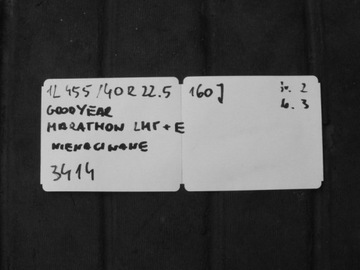 1L 455/40 R 22.5
GOODYEAR
MARATHON LHT+E
NIENACINANE
3414
160J
4. 3